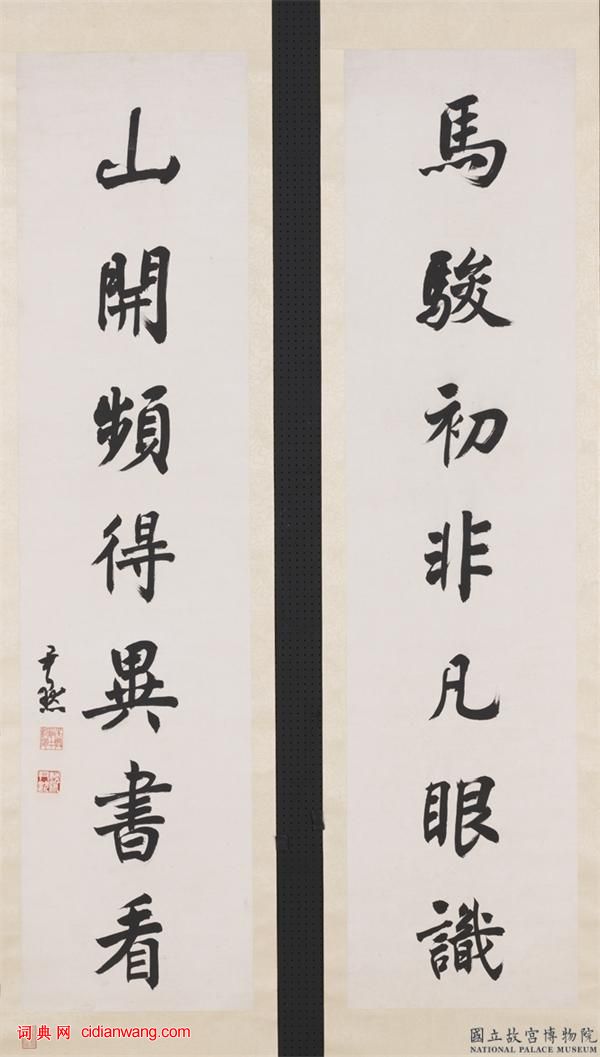 馬駿初非凡眼識
山開頻得異書看
尹默
词典网 cidianwang.com
國立故宮博物院
NATIONAL PALACE MUSEUM